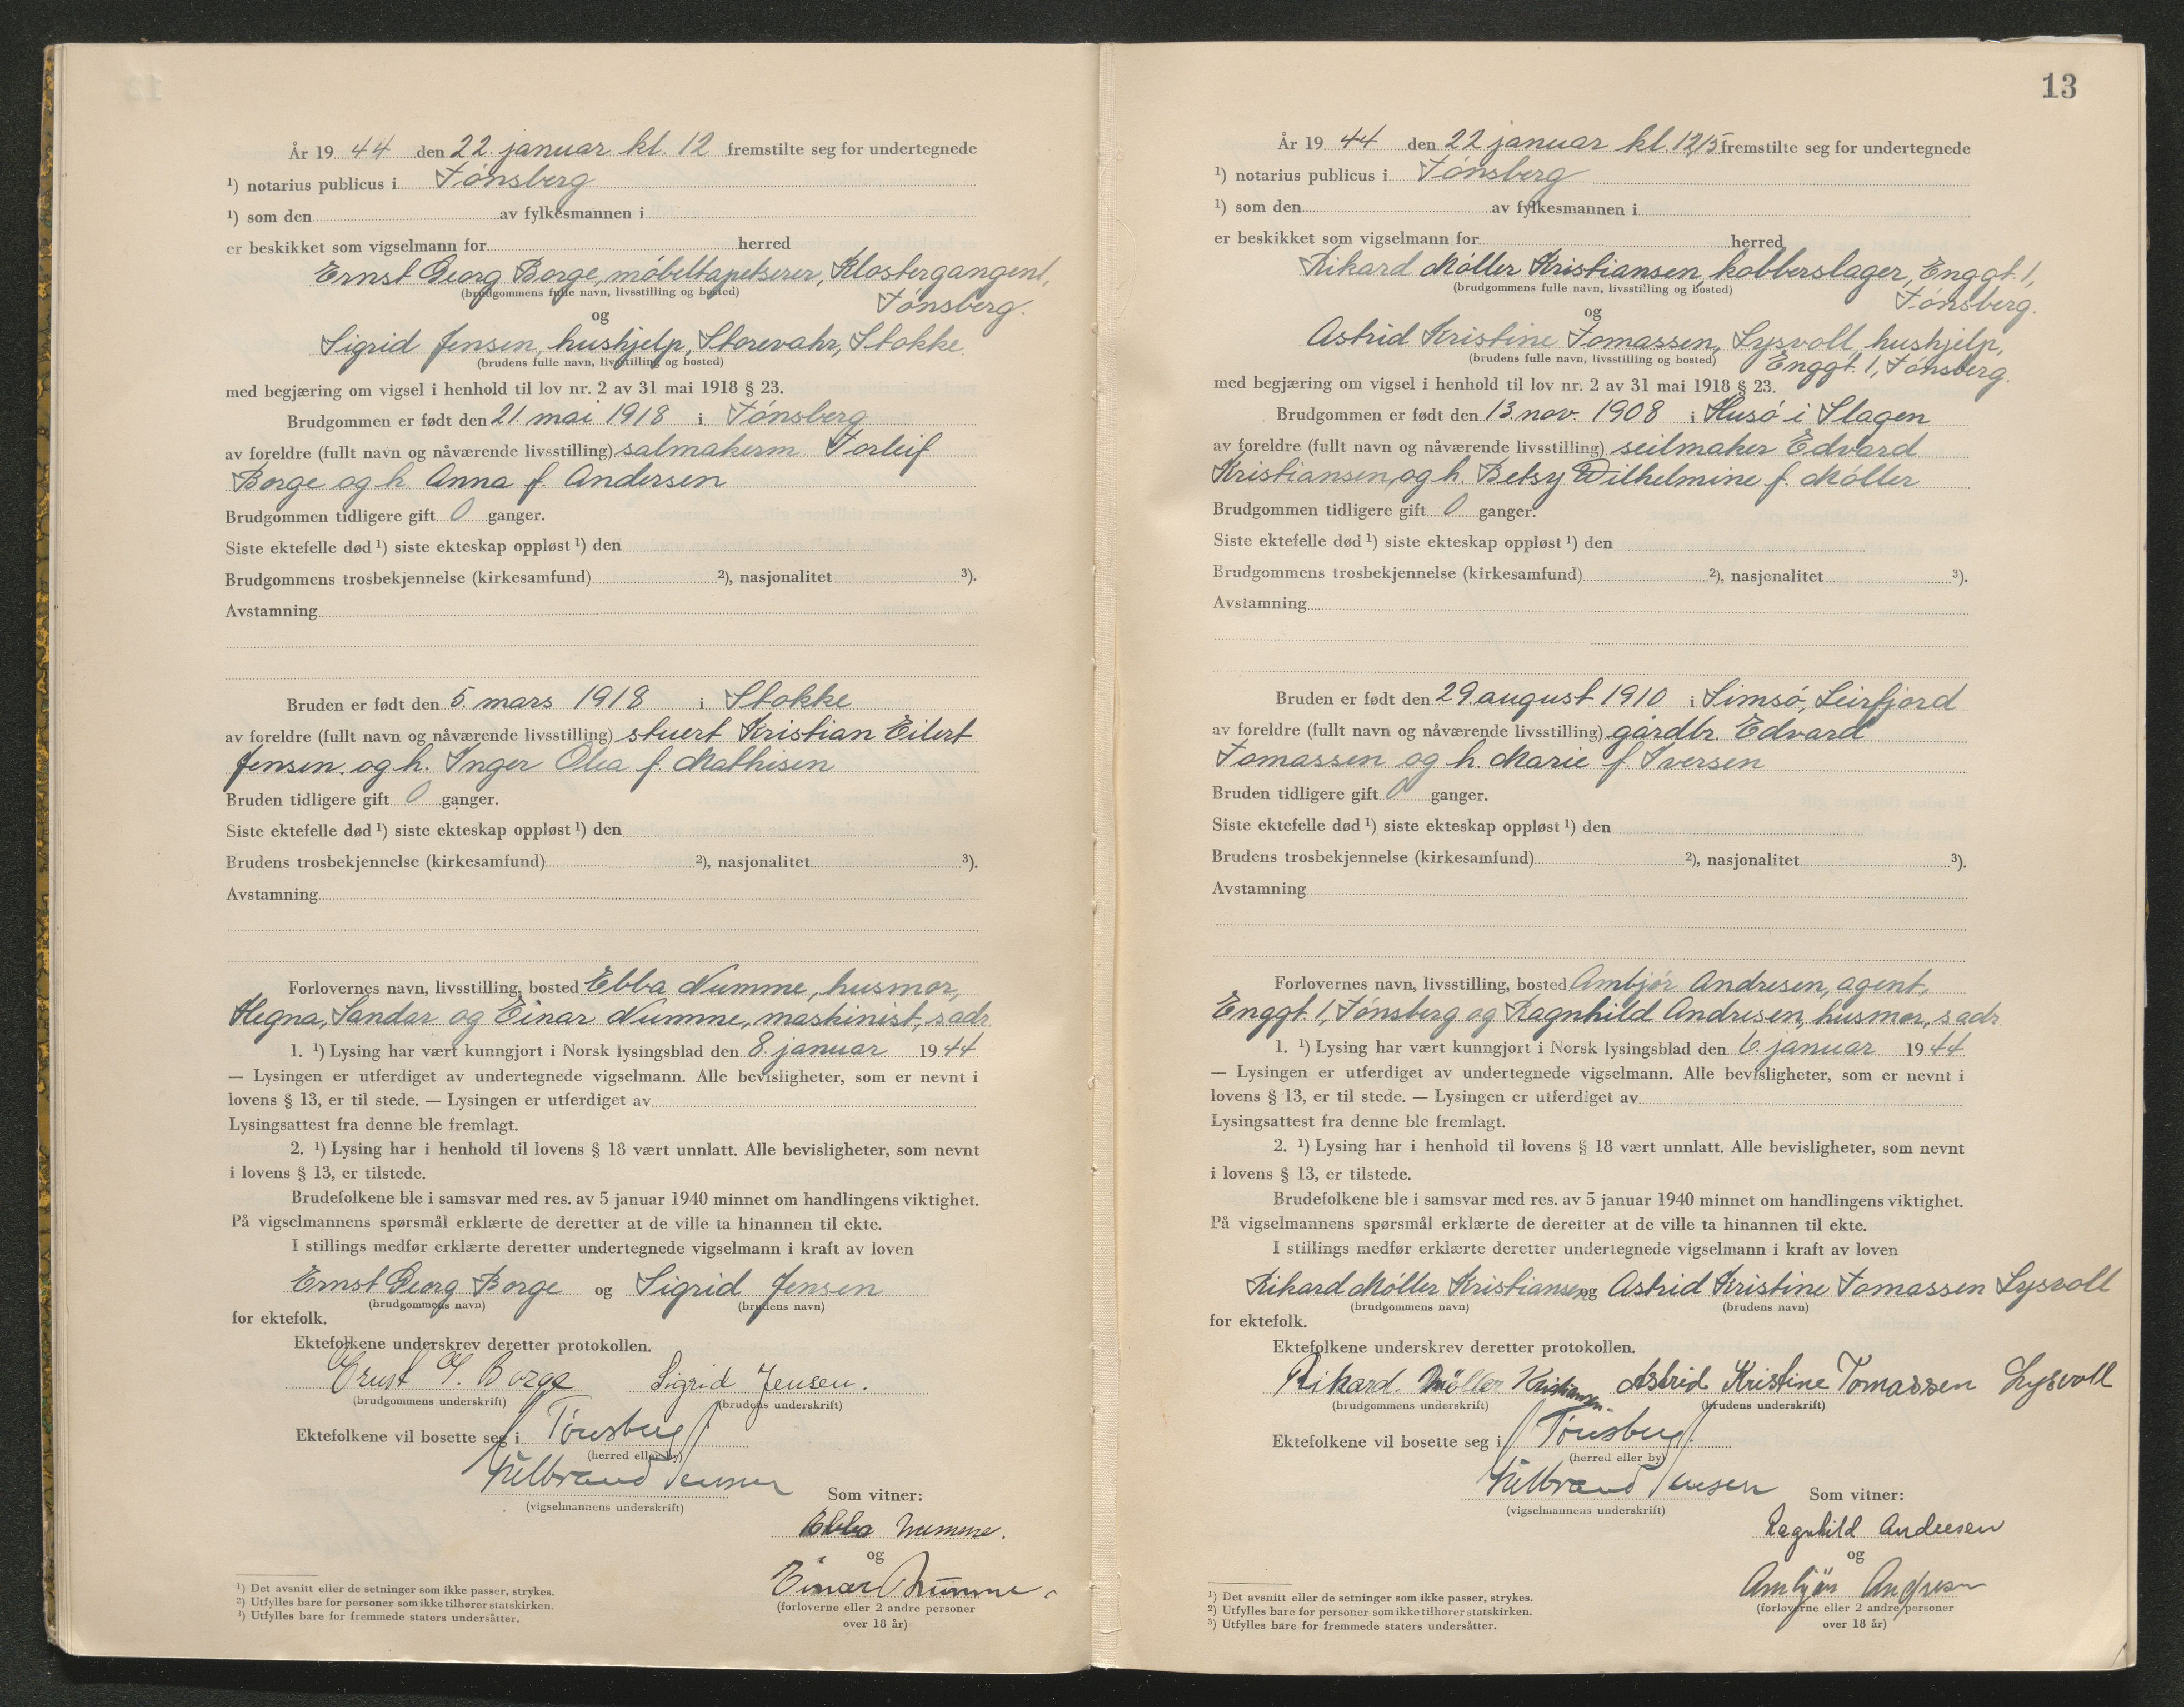 År 19 44 den 22. januar kl. 12 fremstilte seg for undertegnede
¹) notarius publicus i Tønsberg
¹) som den av fylkesmannen i
er beskikket som vigselmann for herred
Ernst Georg Borge, møbeltapetserer, Klostergangen 1,
(brudgommens fulle navn, livsstilling og bosted)
Tønsberg.
og
Sigrid Jensen, hushjelp, Storevahr, Stokke
(brudens fulle navn, livsstilling og bosted)
med begjæring om vigsel i henhold til lov nr. 2 av 31 mai 1918 § 23.
Brudgommen er født den 21 mai 1918 i Tønsberg
av foreldre (fullt navn og nåværende livsstilling) salmakerm Torleif
Borge og h. Anna f. Andersen
Brudgommen tidligere gift 0 ganger.
Siste ektefelle død ¹) siste ekteskap oppløst ¹) den
Brudgommens trosbekjennelse (kirkesamfund) ²), nasjonalitet ³).
Avstamning
Bruden er født den 5. mars 1918 i Stokke
av foreldre (fullt navn og nåværende livsstilling) stuert Kristian Eilert
Jensen og h. Inger Olea f. Mathisen
Bruden tidligere gift 0 ganger.
Siste ektefelle død ¹) siste ekteskap oppløst ¹) den
Brudens trosbekjennelse (kirkesamfund) ²), nasjonalitet ³).
Avstamning
Forlovernes navn, livsstilling, bosted Ebba Numme, husmor,
Hegna, Sandar og Einar Numme, maskinist, s adr.
1. ¹) Lysing har vært kunngjort i Norsk lysingsblad den 8. januar 1944
— Lysingen er utferdiget av undertegnede vigselmann. Alle bevisligheter, som er nevnt i
lovens § 13, er til stede. — Lysingen er utferdiget av
Lysingsattest fra denne ble fremlagt.
2. ¹) Lysing har i henhold til lovens § 18 vært unnlatt. Alle bevisligheter, som nevnt
i lovens § 13, er tilstede.
Brudefolkene ble i samsvar med res. av 5 januar 1940 minnet om handlingens viktighet.
På vigselmannens spørsmål erklærte de deretter at de ville ta hinannen til ekte.
I stillings medfør erklærte deretter undertegnede vigselmann i kraft av loven
Ernst Georg Borge og Sigrid Jensen
(brudgommens navn) (brudens navn)
for ektefolk.
Ektefolkene underskrev deretter protokollen.
Ernst G. Borge Sigrid Jensen.
(brudgommens underskrift) (brudens underskrift)
Ektefolkene vil bosette seg i Tønsberg
(herred eller by)
Jensen
(vigselmannens underskrift)
Som vitner:
Ebba Numme.
og
Einar Numme
(forloverne eller 2 andre personer
over 18 år)
¹) Det avsnitt eller de setninger som ikke passer, strykes.
²) Utfylles bare for personer som ikke tilhører statskirken.
³) Utfylles bare for fremmede staters undersåtter.
13
År 19 44 den 22 januar kl. 12,15 fremstilte seg for undertegnede
¹) notarius publicus i Tønsberg
¹) som den av fylkesmannen i
er beskikket som vigselmann for herred
Rikard Møller Kristiansen, kobberslager, Enggt. 1,
(brudgommens fulle navn, livsstilling og bosted)
Tønsberg.
og
Astrid Kristine Tomassen, Lysvoll, hushjelp,
(brudens fulle navn, livsstilling og bosted)
Enggt. 1, Tønsberg.
med begjæring om vigsel i henhold til lov nr. 2 av 31 mai 1918 § 23.
Brudgommen er født den 13. nov. 1908 i Husø i Slagen
av foreldre (fullt navn og nåværende livsstilling) seilmaker Edvard
Kristiansen og h. Betsy Wilhelmine f. Møller
Brudgommen tidligere gift 0 ganger.
Siste ektefelle død ¹) siste ekteskap oppløst ¹) den
Brudgommens trosbekjennelse (kirkesamfund) ²), nasjonalitet ³).
Avstamning
Bruden er født den 29. august 1910 i Simsø, Leirfjord
av foreldre (fullt navn og nåværende livsstilling) gårdbr. Edvard
Tomassen og h. Marie f. Iversen
Bruden tidligere gift 0 ganger.
Siste ektefelle død ¹) siste ekteskap oppløst ¹) den
Brudens trosbekjennelse (kirkesamfund) ²), nasjonalitet ³).
Avstamning
Forlovernes navn, livsstilling, bosted Ambjør Andresen, agent,
Enggt. 1, Tønsberg og Ragnhild Andresen, husmor, s adr
1. ¹) Lysing har vært kunngjort i Norsk lysingsblad den 6. januar 1944
— Lysingen er utferdiget av undertegnede vigselmann. Alle bevisligheter, som er nevnt i
lovens § 13, er til stede. — Lysingen er utferdiget av
Lysingsattest fra denne ble fremlagt.
2. ¹) Lysing har i henhold til lovens § 18 vært unnlatt. Alle bevisligheter, som nevnt
i lovens § 13, er tilstede.
Brudefolkene ble i samsvar med res. av 5 januar 1940 minnet om handlingens viktighet.
På vigselmannens spørsmål erklærte de deretter at de ville ta hinannen til ekte.
I stillings medfør erklærte deretter undertegnede vigselmann i kraft av loven
Rikard Møller Kristiansen og Astrid Kristine Tomassen Lysvoll
(brudgommens navn) (brudens navn)
for ektefolk.
Ektefolkene underskrev deretter protokollen.
Rikard. Møller Kristiansen Astrid Kristine Tomassen Lysvoll
(brudgommens underskrift) (brudens underskrift)
Ektefolkene vil bosette seg i Tønsberg
(herred eller by)
Jensen
(vigselmannens underskrift)
Som vitner:
Ragnhild Andresen
og
Ambjør Andresen
(forloverne eller 2 andre personer
over 18 år)
¹) Det avsnitt eller de setninger som ikke passer, strykes.
²) Utfylles bare for personer som ikke tilhører statskirken.
³) Utfylles bare for fremmede staters undersåtter.